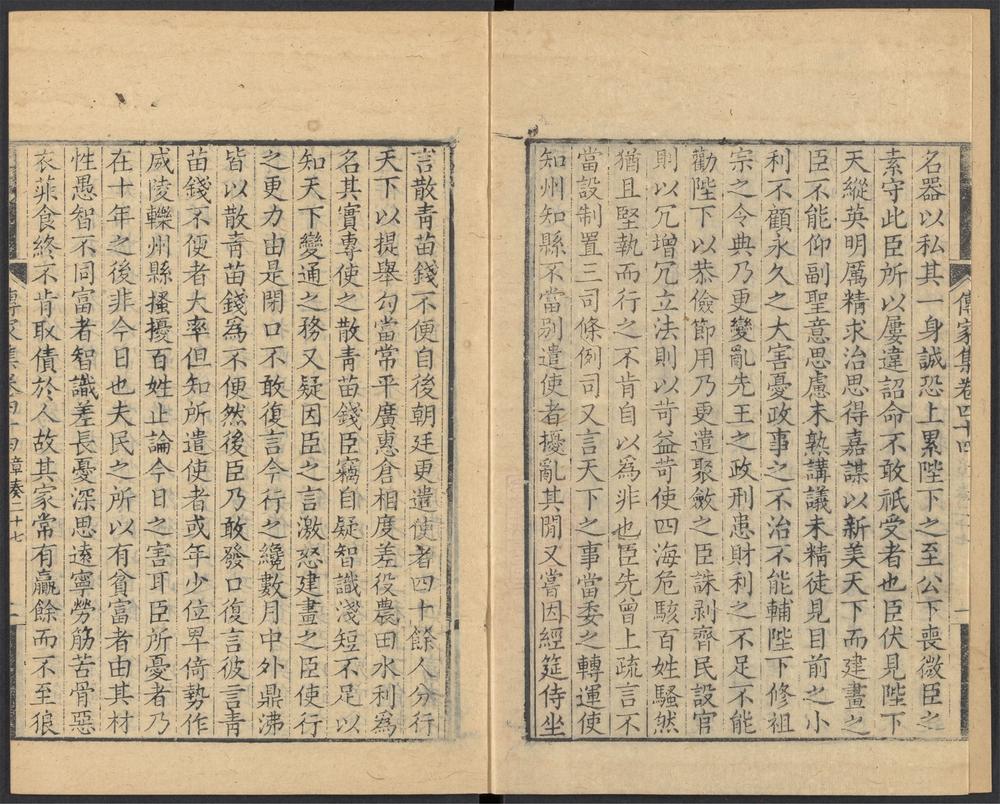 傳家集卷四十四
一
名器以私其一身誠恐上累陛下之至公下喪微臣之
素守此臣所以屢違詔命不敢祇受者也臣伏見陛下
天縱英明厲精求治思得嘉謀以新美天下而建畫之
臣不能仰副聖意思慮未熟講議未精徒見目前之小
利不顧永久之大害憂政事之不治不能輔陛下修祖
宗之令典乃更變亂先王之政刑患財利之不足不能
勸陛下以恭儉節用乃更遣聚斂之臣誅剥齊民設官
則以冗增冗立法則以苛益苛使四海危駭百姓騷然
猶且堅執而行之不肯自以為非也臣先曾上疏言不
當設制置三司條例司又言天下之事當委之轉運使
知州知縣不當別遣使者擾亂其閒又嘗因經筵侍坐
言散青苗錢不便自後朝廷更遣使者四十餘人分行
天下以提舉勾當常平廣惠倉相度差役農田水利為
名其實專使之散青苗錢臣竊自疑智識淺短不足以
知天下變通之務又疑因臣之言激怒建畫之臣使行
之更力由是閉口不敢復言今行之纔數月中外鼎沸
皆以散青苗錢為不便然後臣乃敢發口復言彼言青
苗錢不便者大率但知所遣使者或年少位卑倚勢作
威陵轢州縣搔擾百姓止論今日之害耳臣所憂者乃
在十年之後非今日也夫民之所以有貧富者由其材
性愚智不同富者智識差長憂深思遠寧勞筋苦骨惡
衣菲食終不肯取債於人故其家常有贏餘而不至狼
傳家集卷四十四 章奏二十七